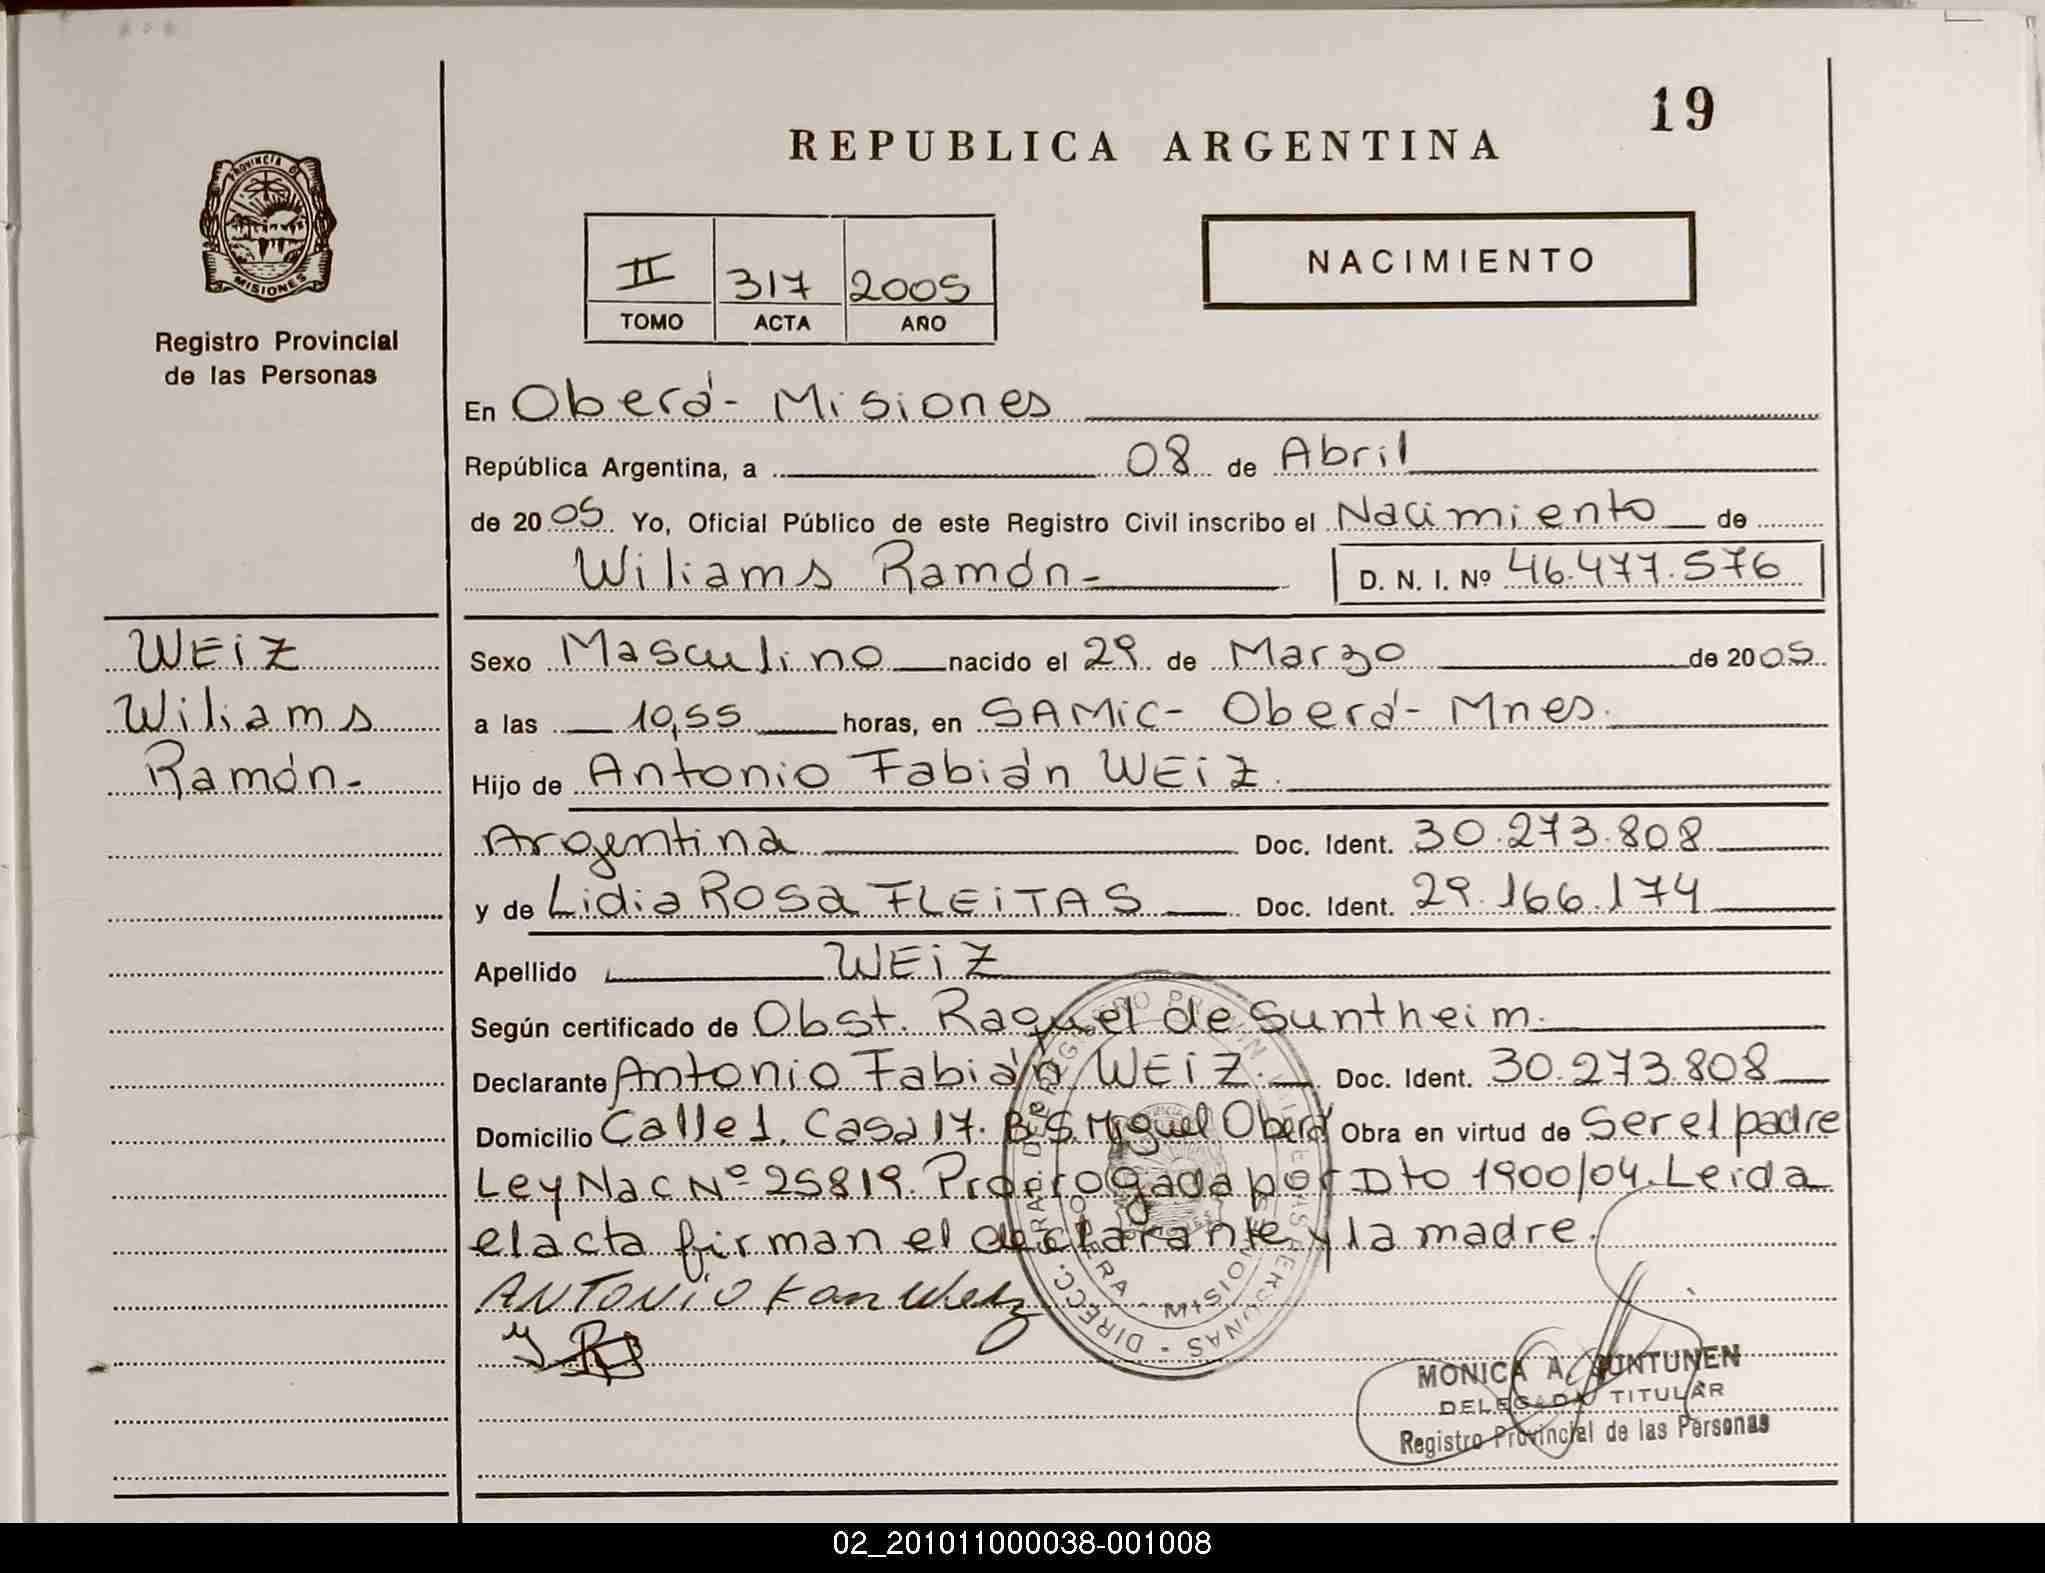 19
REPUBLICA ARGENTINA
PROVINCIA D
MISIONES
Registro Provincial
de las Personas
NACIMIENTO
II 317 2005
TOMO ACTA AÑO
En Oberá - Misiones
República Argentina, a 08 de Abril
de 2005 Yo, Oficial Público de este Registro Civil inscribo el Nacimiento de
Wiliams Ramón - D. N. I. Nº 46.477.576
WEiZ
Wiliams
Ramón -
Sexo Masculino nacido el 29 de Marzo de 2005
a las 10,55 horas, en SAMiC - Oberá - Mnes.
Hijo de Antonio Fabián WEiZ.
Argentina Doc. Ident. 30.273.808
y de Lidia Rosa FLEiTAS Doc. Ident. 29.166.174
Apellido WEiZ
Según certificado de Obst. Raquel de Suntheim.
Declarante Antonio Fabián WEiZ. Doc. Ident. 30.273.808
Domicilio Calle 1. Casa 17. B S. Miguel Oberá Obra en virtud de Ser el padre
Ley Nac Nº 25819. Prorrogada por Dto 1900/04. Leida
el acta firman el declarante y la madre.
ANTONiO
MONICA A. SUNTUNEN
DELEGADA TITULAR
Registro Provincial de las Personas
02_201011000038-001008